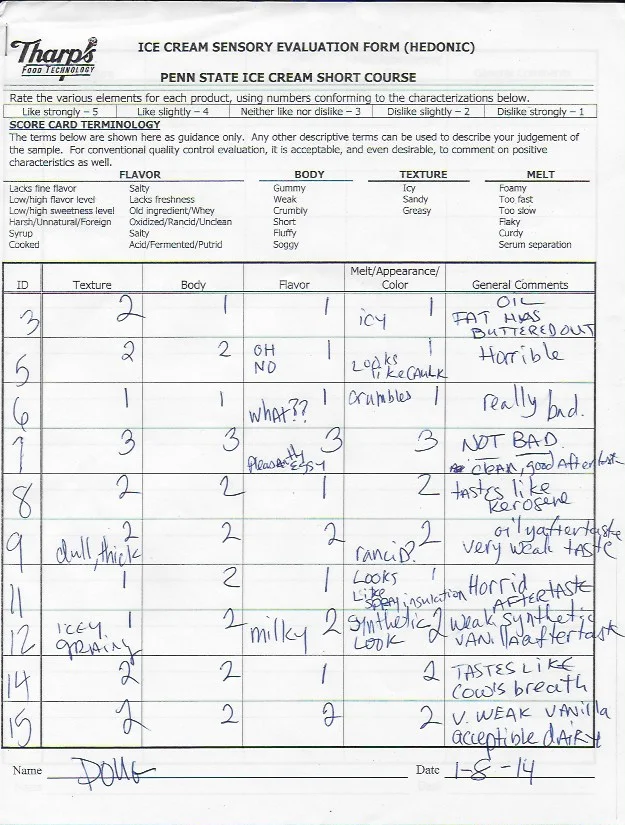 Tharp's
FOOD TECHNOLOGY
ICE CREAM SENSORY EVALUATION FORM (HEDONIC)
PENN STATE ICE CREAM SHORT COURSE
Rate the various elements for each product, using numbers conforming to the characterizations below.
Like strongly – 5 Like slightly – 4 Neither like nor dislike – 3 Dislike slightly – 2 Dislike strongly – 1
SCORE CARD TERMINOLOGY
The terms below are shown here as guidance only. Any other descriptive terms can be used to describe your judgement of
the sample. For conventional quality control evaluation, it is acceptable, and even desirable, to comment on positive
characteristics as well.
FLAVOR BODY TEXTURE MELT
Lacks fine flavor Salty Gummy Icy Foamy
Low/high flavor level Lacks freshness Weak Sandy Too fast
Low/high sweetness level Old ingredient/Whey Crumbly Greasy Too slow
Harsh/Unnatural/Foreign Oxidized/Rancid/Unclean Short Flaky
Syrup Salty Fluffy Curdy
Cooked Acid/Fermented/Putrid Soggy Serum separation
ID Texture Body Flavor Melt/Appearance/ Color General Comments
3 2 1 1 icy 1 OIL
FAT HAS
BUTTERED OUT
5 2 2 OH NO 1 Looks like CAULK 1 Horrible
6 1 1 WHAT?? 1 crumbles 1 really bad.
7 3 3 Pleasantly EGGY 3 3 NOT BAD.
clean, good Aftertaste
8 2 2 1 2 tastes like
kerosene
9 dull, thick 2 2 2 rancid? 2 oily aftertaste
very weak taste
11 1 2 1 Looks Like SPRAY insulation 1 Horrid
AFTERTASTE
12 ICEY GRAINY 1 2 milky 2 Synthetic LOOK 2 Weak, synthetic
VANILLA aftertaste
14 2 2 1 2 TASTES LIKE
Cow's breath
15 2 2 2 2 V. WEAK VANilla
acceptible dAIRY
Name DOUG Date 1-8-14